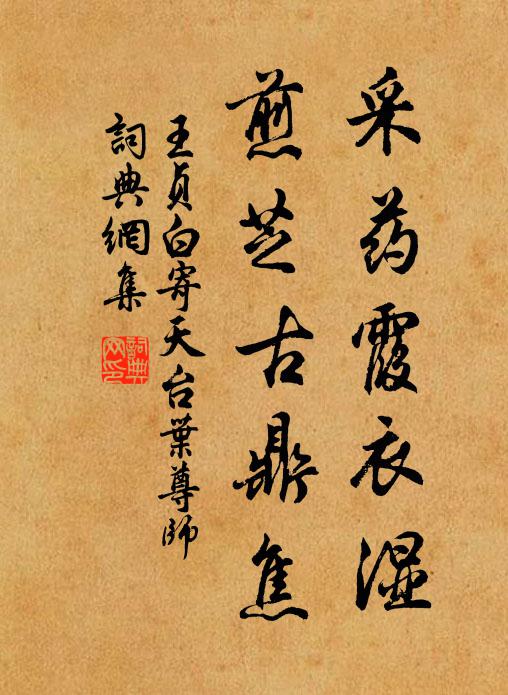 采药霞衣湿
煎芝古鼎焦
王贞白寄天台葉尊師
詞典網集
詞典網印